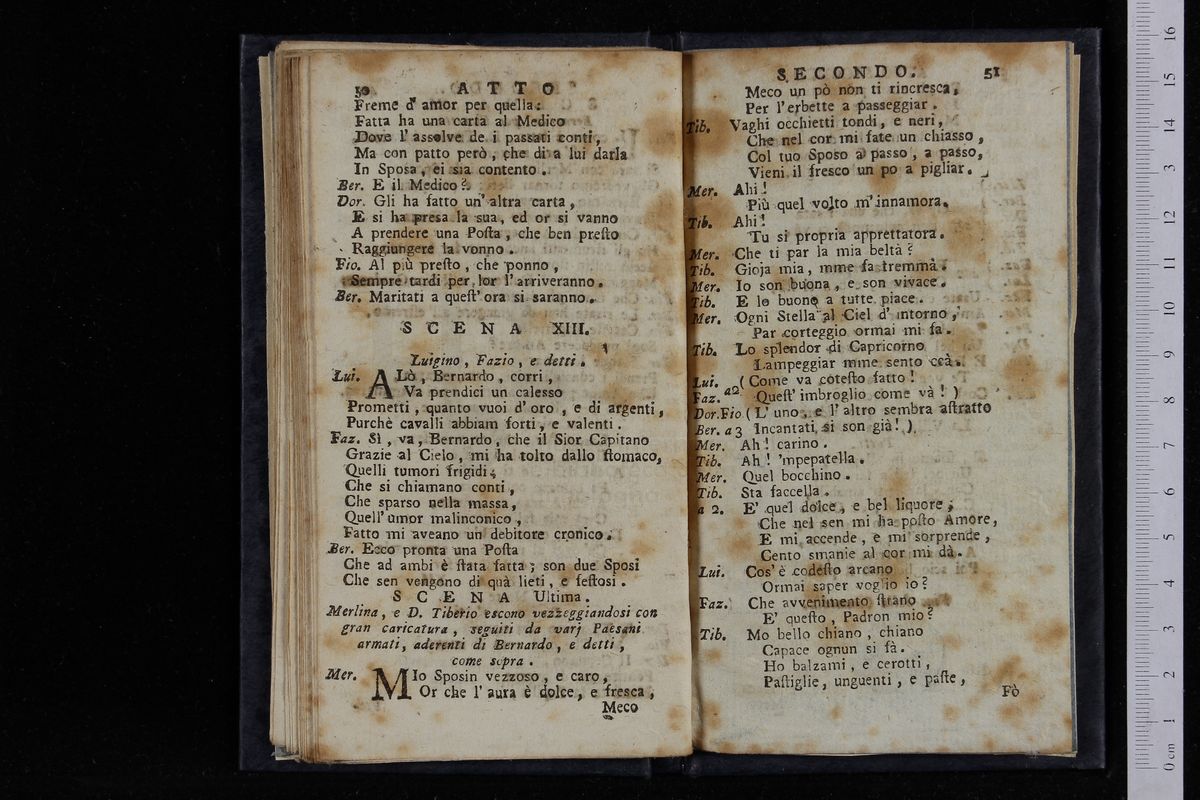 50 ATTO
Freme d' amor per quella:
Fatta ha una carta al Medico
Dove l' assolve de i passati conti,
Ma con patto però, che di a lui darla
In Sposa, ei sia contento.
Ber. E il Medico?
Dor. Gli ha fatto un' altra carta,
E si ha presa la sua, ed or si vanno
A prendere una Posta, che ben presto
Raggiungere la vonno.
Fio. Al più presto, che ponno,
Sempre tardi per lor l' arriveranno.
Ber. Maritati a quest' ora si saranno.
SCENA XIII.
Luigino, Fazio, e detti.
Lui. ALò, Bernardo, corri,
Va prendici un calesso
Prometti, quanto vuoi d' oro, e di argenti,
Purchè cavalli abbiam forti, e valenti.
Faz. Sì, va, Bernardo, che il Sior Capitano
Grazie al Cielo, mi ha tolto dallo stomaco,
Quelli tumori frigidi,
Che si chiamano conti,
Che sparso nella massa,
Quell' umor malinconico,
Fatto mi aveano un debitore cronico.
Ber. Ecco pronta una Posta
Che ad ambi è stata fatta; son due Sposi
Che sen vengono di quà lieti, e festosi.
SCENA Ultima.
Merlina, e D. Tiberio escono vezzeggiandosi con
gran caricatura, seguiti da varj Paesani
armati, aderenti di Bernardo, e detti,
come sopra.
Mer. MIo Sposin vezzoso, e caro,
Or che l' aura è dolce, e fresca,
Meco
SECONDO. 51
Meco un pò non ti rincresca,
Per l'erbette a passeggiar.
Tib. Vaghi occhietti tondi, e neri,
Che nel cor mi fate un chiasso,
Col tuo Sposo a passo, a passo,
Vieni il fresco un po a pigliar.
Mer. Ahi!
Più quel volto m'innamora.
Tib. Ahi!
Tu si propria apprettatora.
Mer. Che ti par la mia beltà?
Tib. Gioja mia, mme fa tremmà.
Mer. Io son buona, e son vivace.
Tib. E lo buono a tutte piace.
Mer. Ogni Stella al Ciel d' intorno,
Par corteggio ormai mi fa.
Tib. Lo splendor di Capricorno
Lampeggiar mme sento ccà.
Lui. (Come va cotesto fatto!
Faz. a2 Quest' imbroglio come và!)
Dor.Fio (L' uno, e l' altro sembra astratto
Ber. a 3 Incantati si son già!)
Mer. Ah! carino.
Tib. Ah! 'mpepatella.
Mer. Quel bocchino.
Tib. Sta faccella.
a 2. E' quel dolce, e bel liquore,
Che nel sen mi ha posto Amore,
E mi accende, e mi sorprende,
Cento smanie al cor mi dà.
Lui. Cos' è codesto arcano
Ormai saper voglio io?
Faz. Che avvenimento strano
E' questo, Padron mio?
Tib. Mo bello chiano, chiano
Capace ognun si fà.
Ho balzami, e cerotti,
Pastiglie, unguenti, e paste,
Fò
0 cm 1 2 3 4 5 6 7 8 9 10 11 12 13 14 15 16